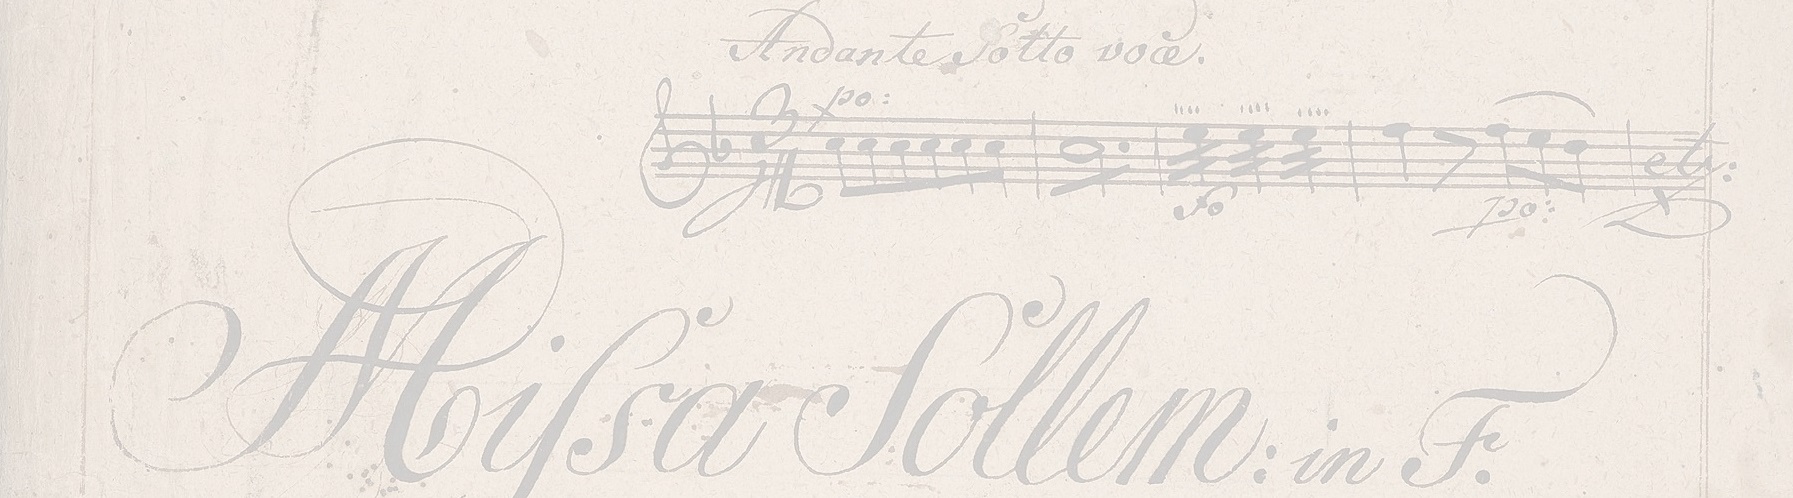 Andante Sotto voce.
po:
fo
po:
etc:
Missa Sollem: in F.